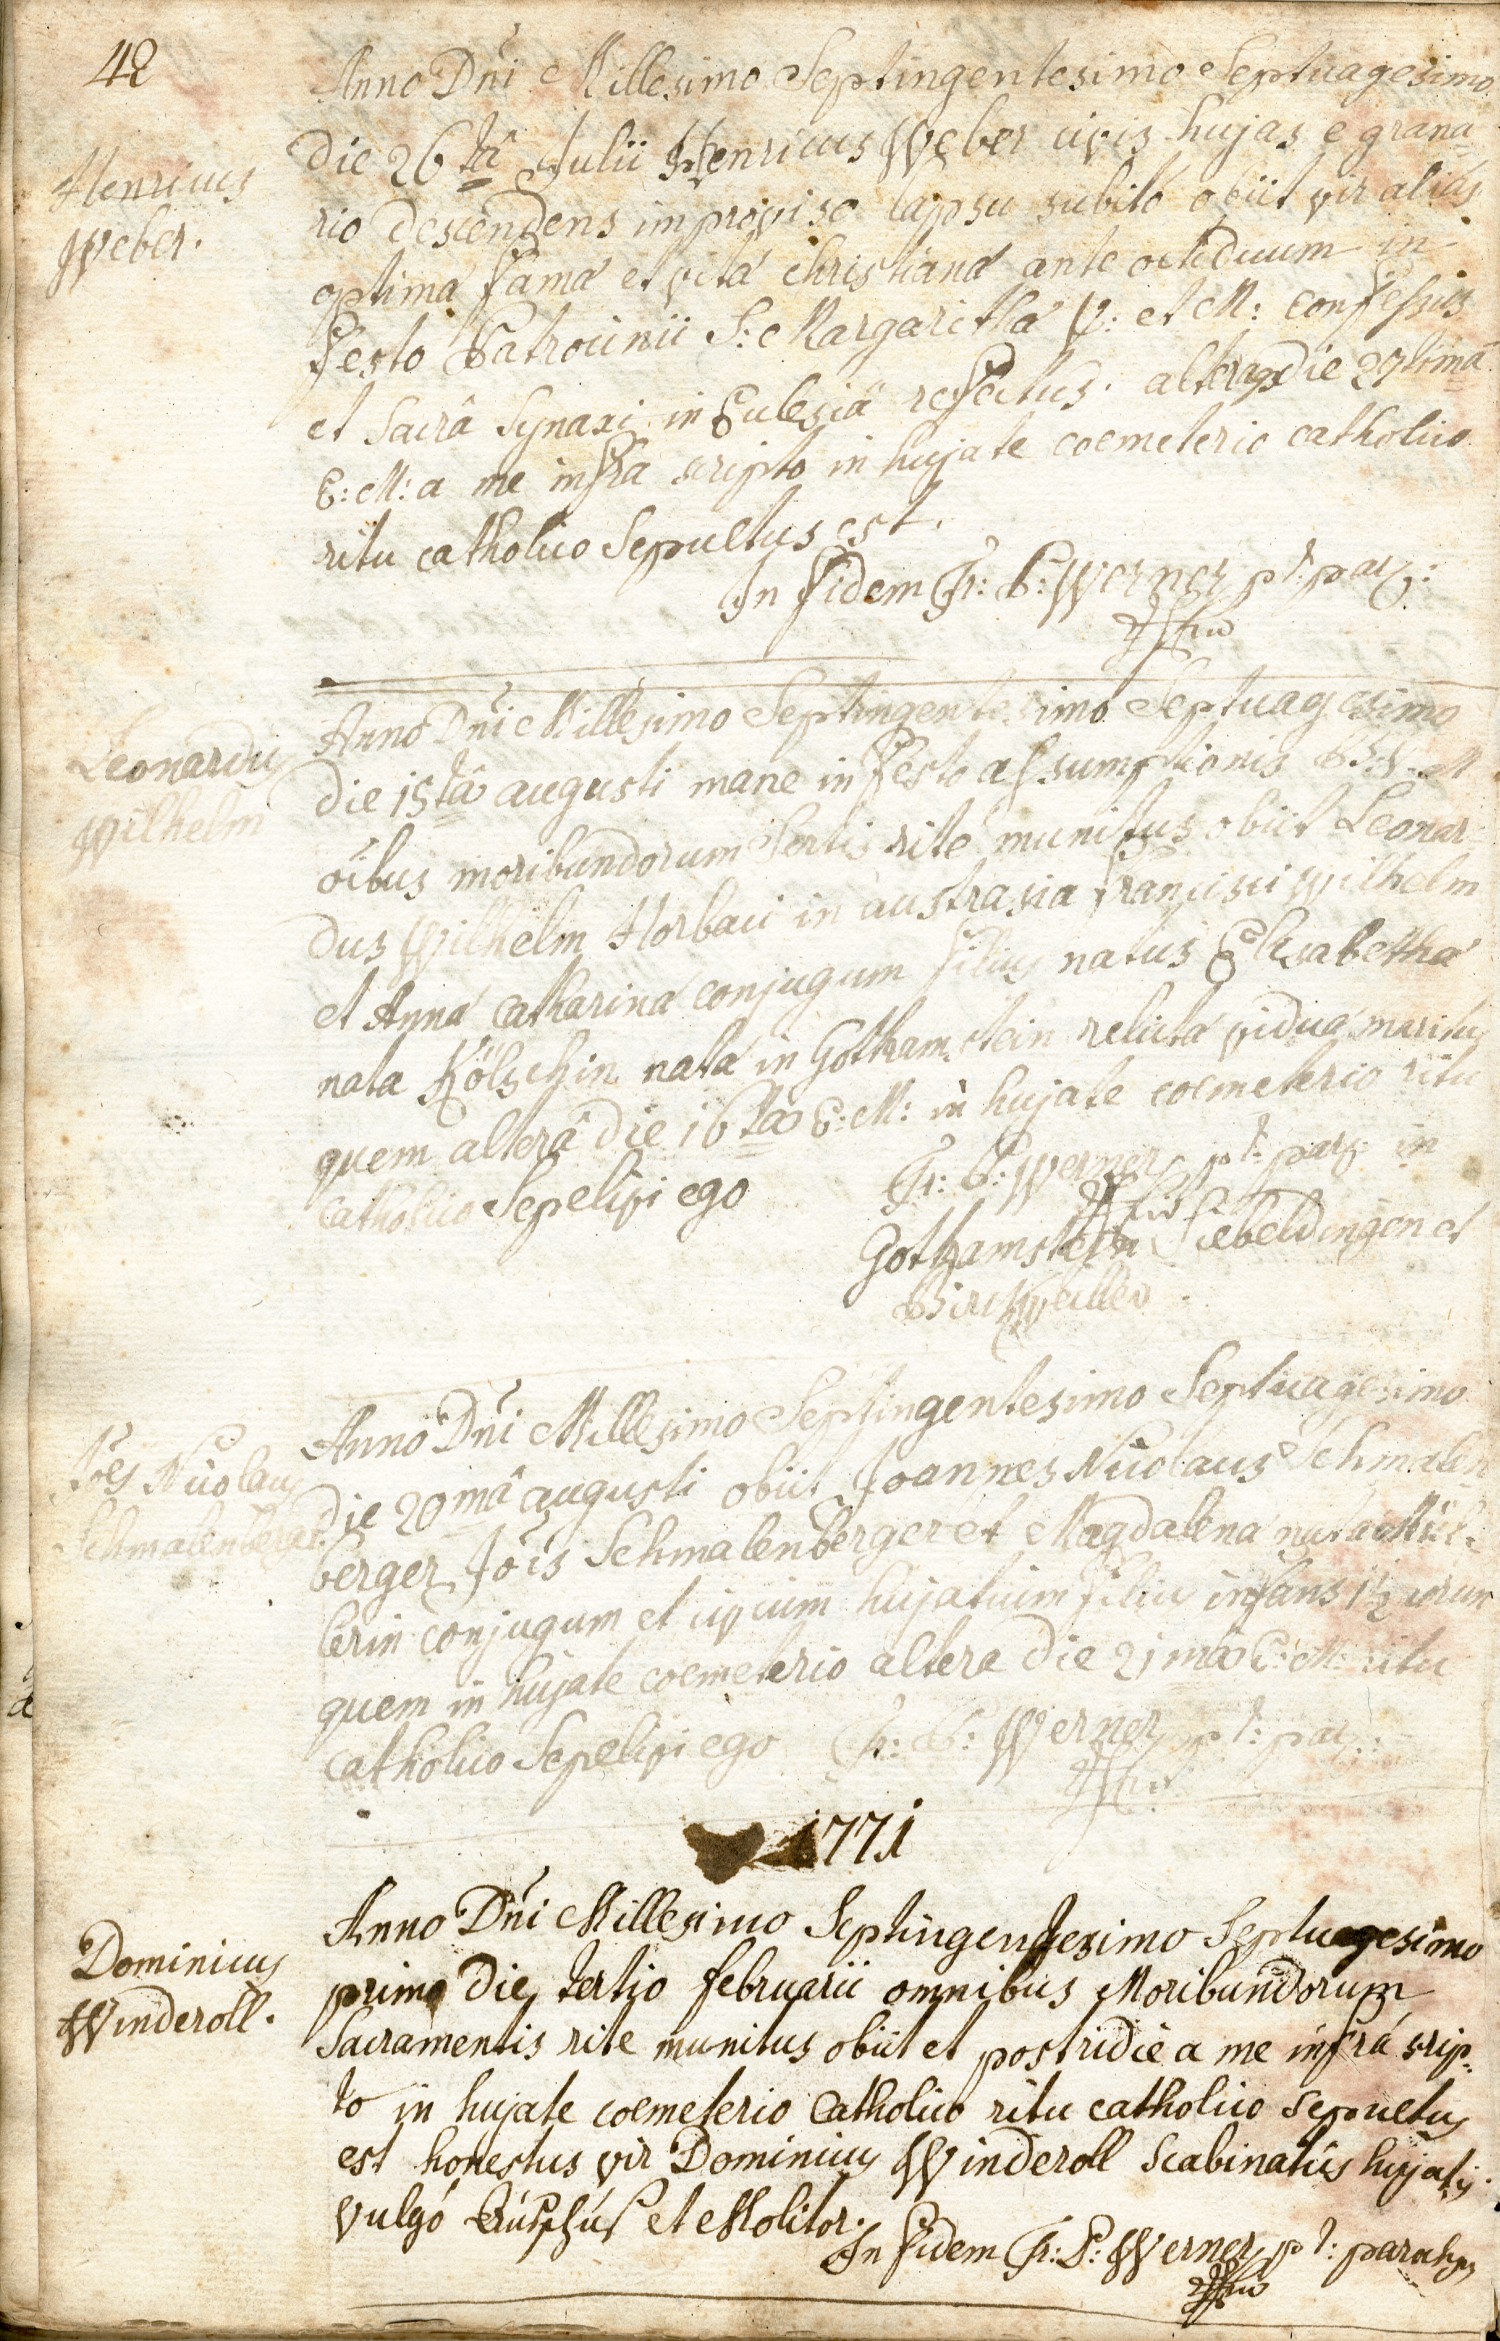 48
Anno Dñi Millesimo Septingentesimo Septuagesimo
Henricus
Weber.
die 26tâ Julii Henricus Weber civis hujas e grana=
rio descendens improviso lapsu subitò obiit vir aliàs
optimâ famâ et vitâ christianâ ante octiduum in
Festo Patrocinii S: Margarithâ V: et M: confessus
et Sacrâ Synaxi in Ecclesiâ refectus. alteraqe die 27timâ
E: M: a me infra scripto in hujate coemeterio catholico
ritu catholico Sepultus est.
In fidem Fr: P: Werner pt: par:
Leonardus
Wilhelm
Anno Dñi Millesimo Septingentesimo Septuagesimo
die 15tâ augusti mane in Festo assumptionis
oibus moribundorum rité munitus obiit Leonar=
dus Wilhelm Horbaci in austrasia Francisci Wilhelm
et Anna Catharina conjugum filius natus Elisabetha
nata Kölschin nata in Gothamstein relicta vidua maritus
quem alterâ die 16ta E: M: in hujate coemeterio ritu
catholico Sepelivi ego
Fr: P: Werner pt: par: in
Gothamstein Siebeldingen et
Birckweiller
Joës Nicolaus
Schmalenberger
Anno Dñi Millesimo Septingentesimo Septuagesimo
die 20mâ augusti obiit Joannes Nicolaus Schmalen
berger Joïs Schmalenberger et Magdalena nata Mül=
lerin conjugum et civium hujatium filius infans 1½
quem in hujate coemeterio altera die 21ma E: M: ritu
catholico Sepelivi ego Fr: P: Werner pt: par:
1771
Dominicus
Winderoll.
Anno Dñi Millesimo Septingentesimo Septuagesimo
primo die tertio februarii omnibus Moribundorum
Sacramentis rite munitus obiit et postridie a me infrá scrip=
to in hujate coemeterio Catholico ritu catholico sepultus
est honestus vir Dominicus Winderoll Scabinatûs hujatis
vulgó et Molitor.
In fidem Fr: P: Werner pt: parochus